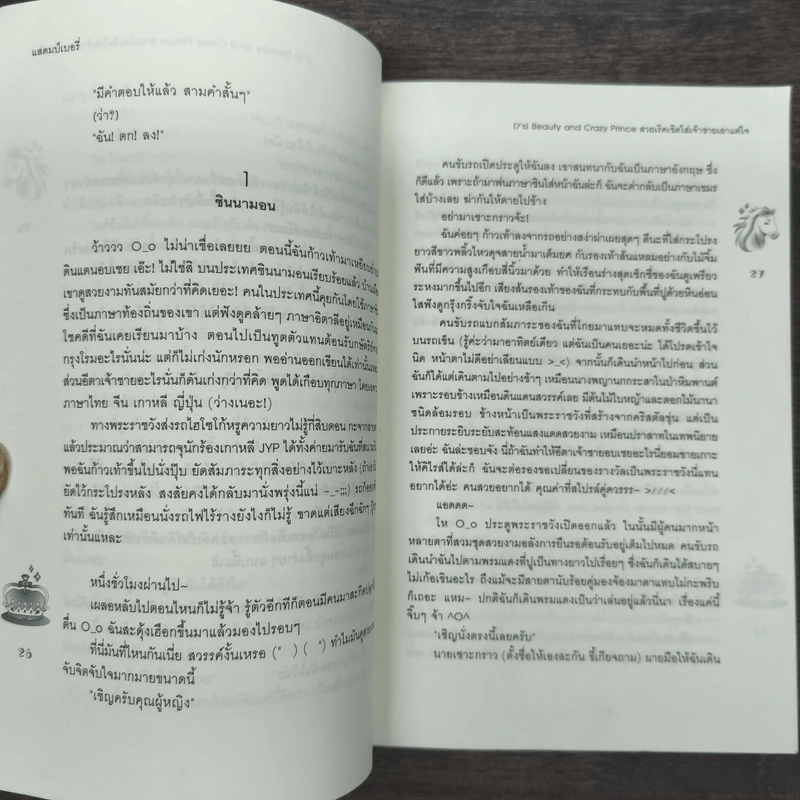 แสตมป์เบอรี่
"มีคำตอบให้แล้ว สามคำสั้นๆ"
(ว่า?)
"ฉัน! ตก! ลง!"
1
ซินนามอน
ว้าววว O_o ไม่น่าเชื่อเลยยย ตอนนี้ฉันก้าวเท้ามาเหยียบ
ดินแดนอบเชย เอ๊ะ! ไม่ใช่สิ บนประเทศซินนามอนเรียบร้อยแล้ว
เขาดูสวยงามทันสมัยกว่าที่คิดเยอะ! คนในประเทศนี้คุยกันโดยใช้
ซึ่งเป็นภาษาท้องถิ่นของเขา แต่ฟังดูคล้ายๆ ภาษาอิตาลีอยู่เหมือนกัน
โชคดีที่ฉันเคยเรียนมาบ้าง ตอนไปเป็นทูตตัวแทนต้อนรับ
กรุงโรมอะไรนั่นน่ะ แต่ก็ไม่เก่งนักหรอก พออ่านออกเขียนได้
ส่วนอีตาเจ้าชายอะไรนั่นก็ดันเก่งกว่าที่คิด พูดได้เกือบทุกภาษา
ภาษาไทย จีน เกาหลี ญี่ปุ่น (ว่างเนอะ!)
ทางพระราชวังส่งรถไฮโซโก้หรูความยาวไม่รู้กี่สิบตอน
แล้วประมาณว่าสามารถจุนักร้องเกาหลี JYP ได้ทั้งค่ายมารับฉัน
พอฉันก้าวเท้าขึ้นไปนั่งปุ๊บ ยัดสัมภาระทุกสิ่งอย่างไว้เบาะหลัง
ยัดไว้กระโปรงหลัง สงสัยคงได้กลับมานั่งพรุ่งนี้แน่ -_-;;;)
ทันที ฉันรู้สึกเหมือนนั่งรถไฟไร้รางยังไงก็ไม่รู้ ขาดแต่เสียงฉึกฉักๆ
เท่านั้นแหละ
หนึ่งชั่วโมงผ่านไป~
เผลอหลับไปตอนไหนก็ไม่รู้จ้า รู้ตัวอีกทีก็ตอนมีคนมาสะกิด
ตื่น O_o ฉันสะดุ้งเฮือกขึ้นมาแล้วมองไปรอบๆ
ที่นี่มันที่ไหนกันเนี่ย สวรรค์งั้นเหรอ (° ) ( °) ทำไมมัน
จับจิตจับใจมากมายขนาดนี้
"เชิญครับคุณผู้หญิง"
26
(ร้าย) Beauty and Crazy Prince สวยเริดเชิดใส่เจ้าชายเอาแต่ใจ
คนขับรถเปิดประตูให้ฉันลง เขาสนทนากับฉันเป็นภาษาอังกฤษ ซึ่ง
ก็ดีแล้ว เพราะถ้ามาพ่นภาษาซินใส่หน้าฉันล่ะก็ ฉันจะด่ากลับเป็นภาษาเขมร
ใส่บ้างเลย ฆ่ากันให้ตายไปข้าง
อย่ามาเซาะกราวจ้ะ!
ฉันค่อยๆ ก้าวเท้าลงจากรถอย่างสง่าผ่าเผยสุดๆ ดีนะที่ใส่กระโปรง
ยาวสีขาวพลิ้วไหวดุจสายน้ำมาเต็มยศ กับรองเท้าส้นแหลมอย่างกับไม้จิ้ม
ฟันที่มีความสูงเกือบสี่นิ้วมาด้วย ทำให้เรือนร่างสุดเซ็กซี่ของฉันดูเพรียว
ระหงมากขึ้นไปอีก เสียงส้นรองเท้าของฉันที่กระทบกับพื้นที่ปูด้วยหินอ่อน
ใสฟังดูกรุ๊งกริ๊งจับใจฉันเหลือเกิน
คนขับรถแบกสัมภาระของฉันที่โกยมาแทบจะหมดทั้งชีวิตขึ้นไว้
บนรถเข็น (รู้ค่ะว่ามาอาทิตย์เดียว แต่ฉันเป็นคนเยอะน่ะ ได้โปรดเข้าใจ
นิด หน้าตาไม่ดีอย่าเลียนแบบ >_<) จากนั้นก็เดินนำหน้าไปก่อน ส่วน
ฉันก็ได้แต่เดินตามไปอย่างช้าๆ เหมือนนางพญานกกระสาในป่าหิมพานต์
เพราะรอบข้างเหมือนดินแดนสวรรค์เลย มีต้นไม้ใบหญ้าและดอกไม้นานา
ชนิดล้อมรอบ ข้างหน้าเป็นพระราชวังที่สร้างจากคริสตัลชุ่น แต่เป็น
ประกายระยิบระยับสะท้อนแสงแดดสวยงาม เหมือนปราสาทในเทพนิยาย
เลยอ่ะ ฉันล่ะชอบจัง นี่ถ้าฉันทำให้อีตาเจ้าชายอบเชยอะไรนี่ยอมขายเกาะ
ให้คิโรส์ได้ล่ะก็ ฉันจะต่อรองขอเปลี่ยนของรางวัลเป็นพระราชวังนี่แทน
อยากได้อ่ะ คนสวยอยากได้ คุณค่าที่สไปรล์คู่ควรรร~ >///<
แอดดด~
โห O_o ประตูพระราชวังเปิดออกแล้ว ในนั้นมีผู้คนมากหน้า
หลายตาที่สวมชุดสวยงามอลังการยืนรอต้อนรับอยู่เต็มไปหมด คนขับรถ
เดินนำฉันไปตามพรมแดงที่ปูเป็นทางยาวไปเรื่อยๆ ซึ่งฉันก็เดินได้สบายๆ
ไม่เก้อเขินอะไร ถึงแม้จะมีสายตานับร้อยคู่มองจ้องมาตาแทบไม่กะพริบ
ก็เถอะ แหม~ ปกติฉันก็เดินพรมแดงเป็นว่าเล่นอยู่แล้วนี่นา เรื่องแค่นี้
จิ๊บๆ จ้า ^O^
"เชิญนั่งตรงนี้เลยครับ"
นายเซาะกราว (ตั้งชื่อให้เองละกัน ขี้เกียจถาม) ผายมือให้ฉันเดิน
27